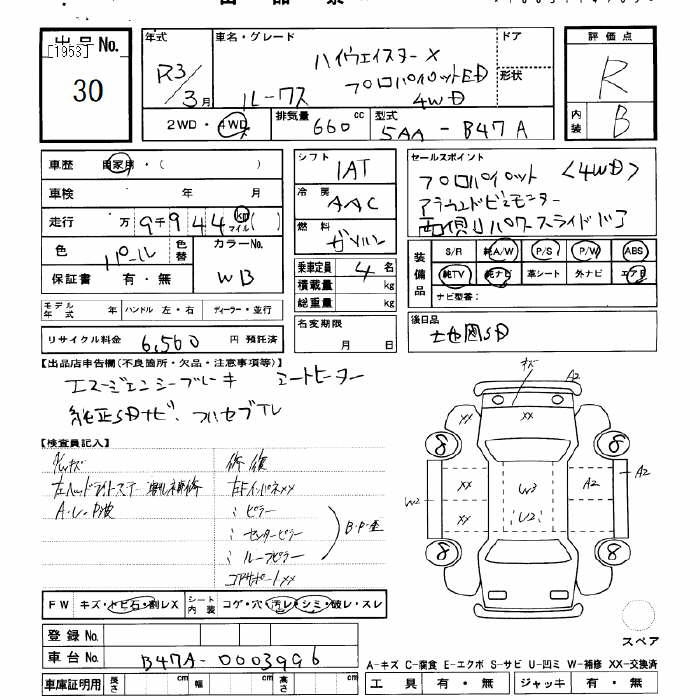 出品No.
[1953]
30
年式
R3/3月
車名・グレード
ハイウェイスターX
プロパイロットED
ルークス 4WD
ドア
形状
評価点
R
内装
B
2WD・4WD
排気量 660 cc
型式 5AA-B47A
車歴 自家用・( )
車検 年 月
走行 万9千944 km マイル( )
色 パール
色替
カラーNo. WB
保証書 有・無
モデル年式 年
ハンドル 左・右
ディーラー・並行
リサイクル料金 6,560 円 預託済
シフト IAT
冷房 AAC
燃料 ガソリン
乗車定員 4 名
積載量 kg
総重量 kg
名変期限
月 日
セールスポイント
プロパイロット <4WD>
アラウンドビューモニター
両側パワースライドドア
装備品
S/R 純A/W P/S P/W ABS
純TV 純ナビ 革シート 外ナビ エアB
ナビ型番:
後日品
地図SD
【出品店申告欄(不良箇所・欠品・注意事項等)】
エマージェンシーブレーキ シートヒーター
純正SDナビ. フルセグTV
【検査員記入】
修復
左ヘッドライトステー
A・L・P波
左Fインパネxx
〃 ピラー
〃 センターピラー
〃 ルーフピラー
コアサポートxx
B・P・歪
FW キズ・トビ石・割レX
シート内装 コゲ・穴・汚レ・シミ・破レ・スレ
登録No.
車台No. B47A-0003996
車庫証明用 長さ cm 幅 cm 高さ cm
キズ
A2
XX
XX
8
8
W2
XX
XX
W3
U2
A2
A2
8
8
スペア
A-キズ C-腐食 E-エクボ S-サビ U-凹ミ W-補修 XX-交換済
工具 有・無 ジャッキ 有・無